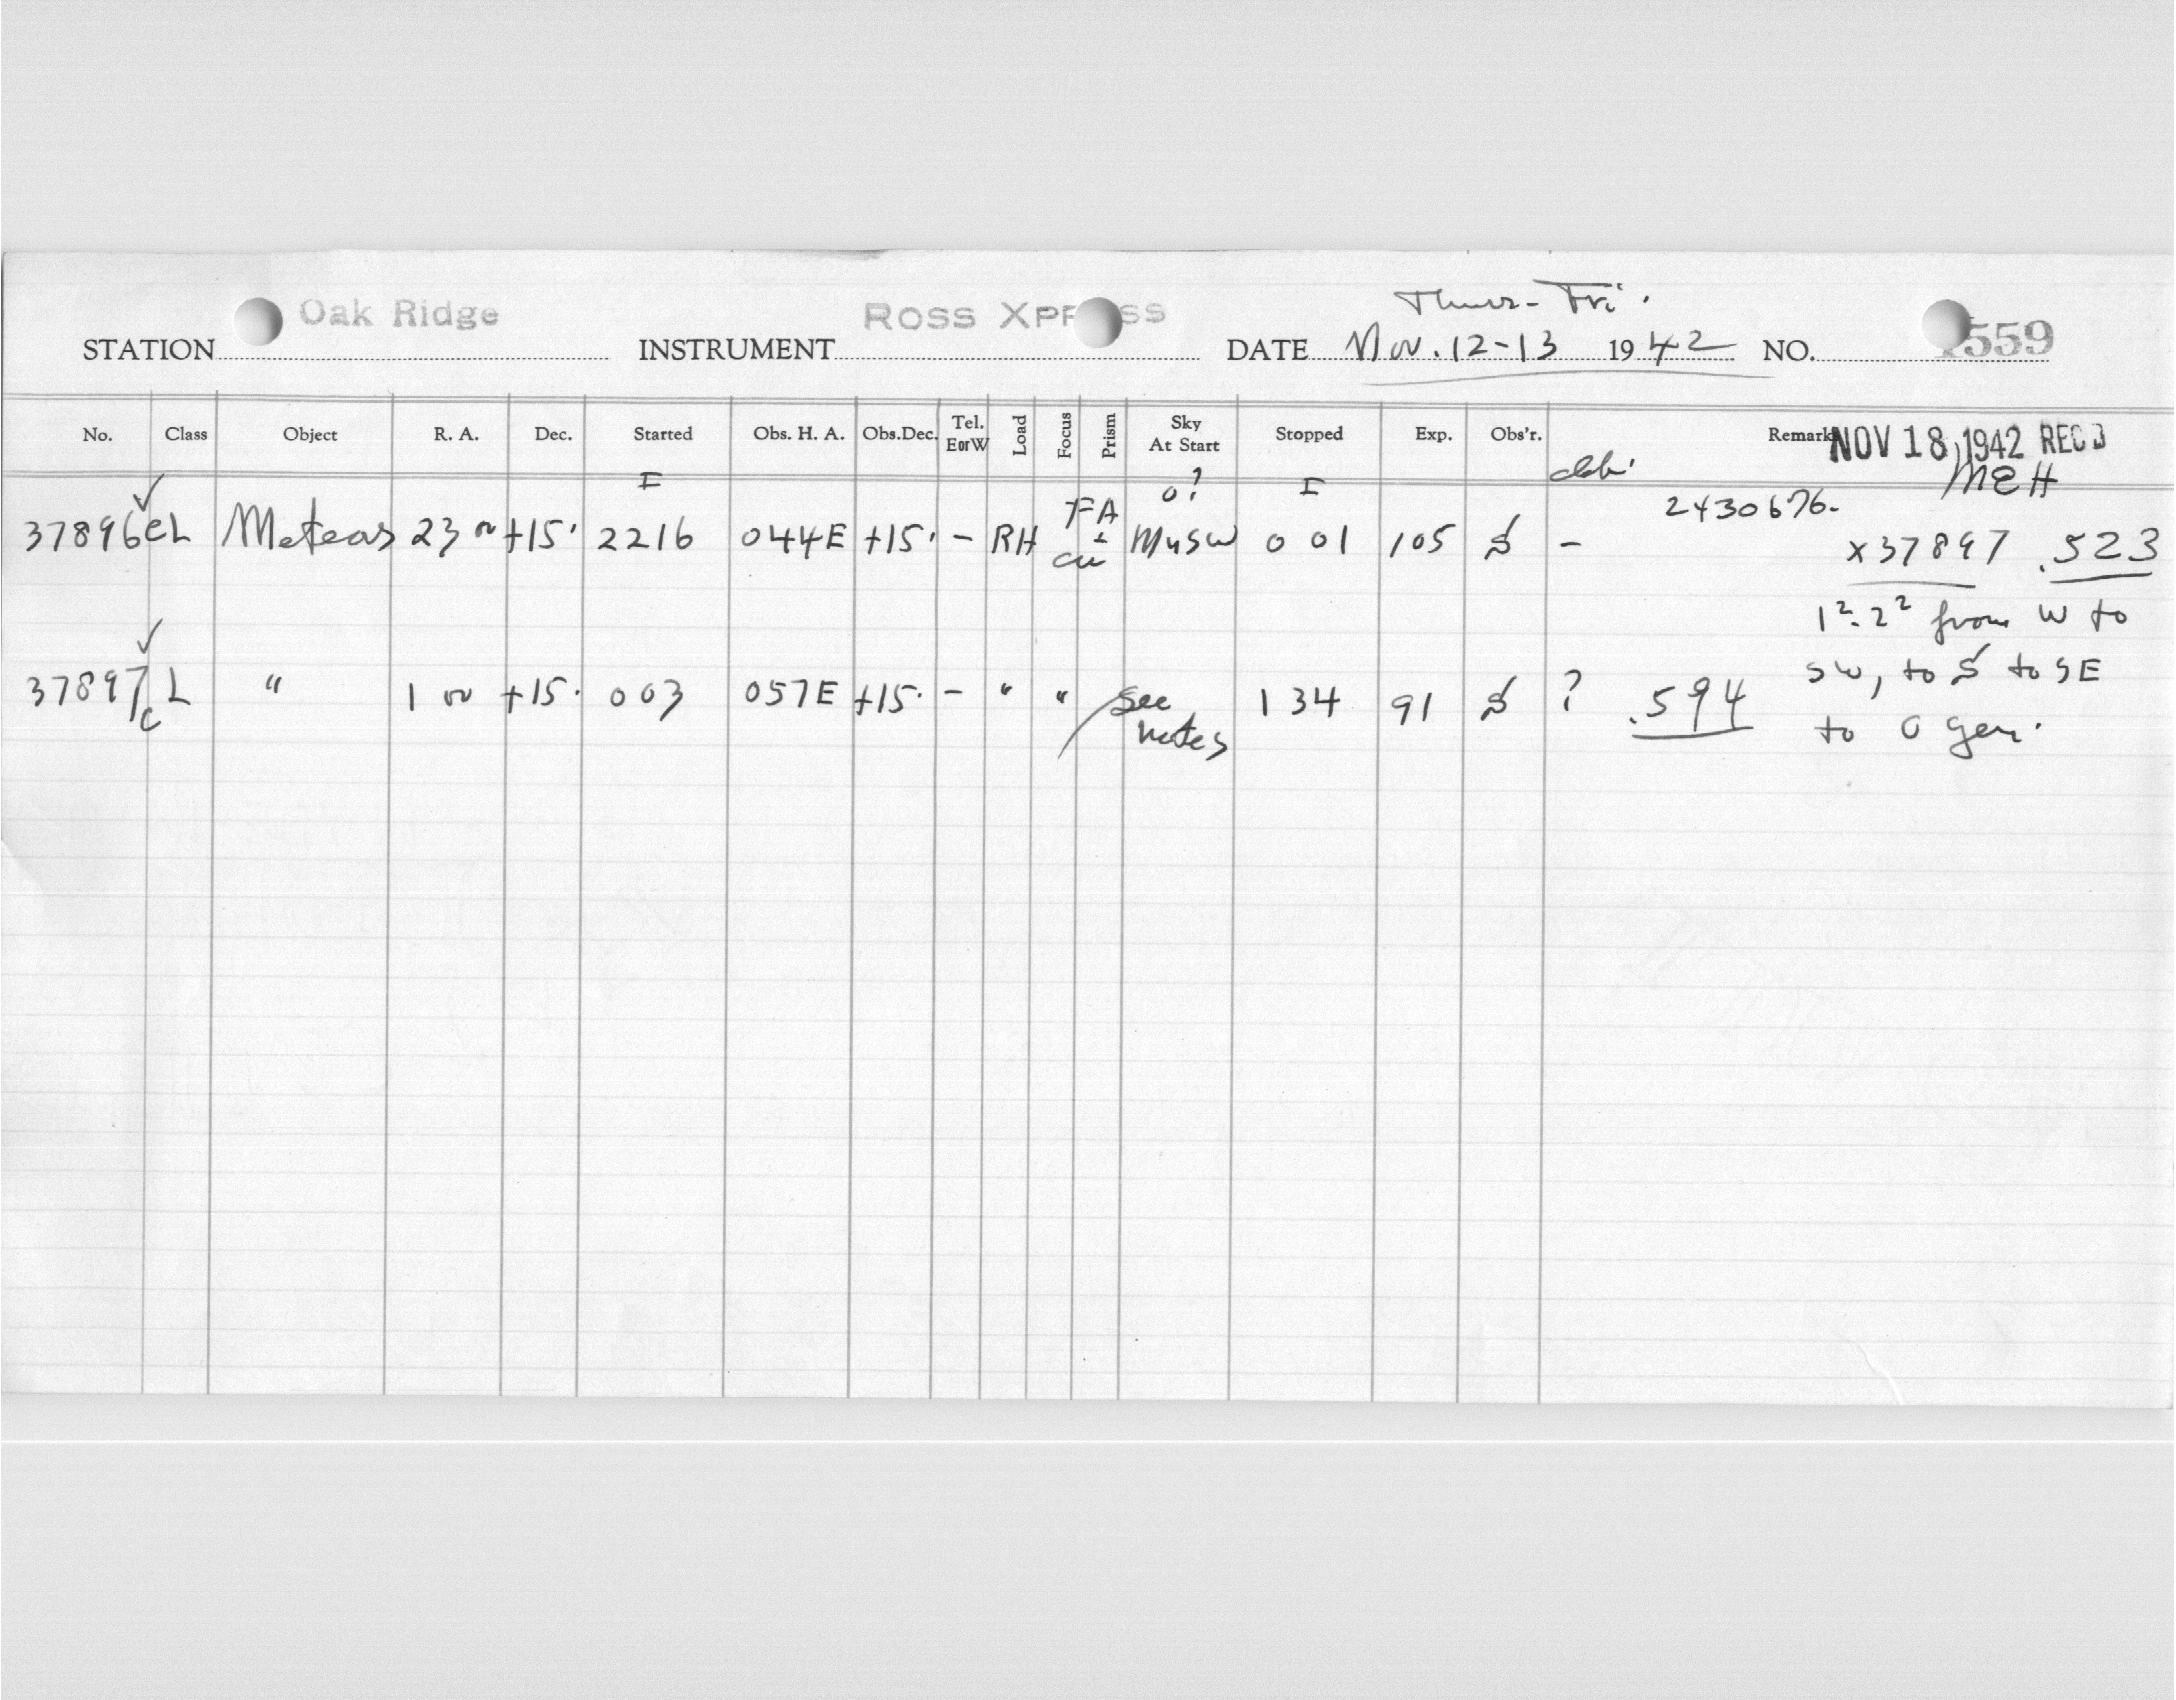 Oak Ridge ROSS XPRESS Thurs-Fri.
STATION INSTRUMENT DATE Nov. 12-13 1942 NO. 559
No. Class Object R. A. Dec. Started Obs. H. A. Obs.Dec. Tel. E or W Load Focus Prism Sky At Start Stopped Exp. Obs'r. Remarks NOV 18 1942 REC'D
MEH
37896 cL Meteors 23 00 +15. 2216 044E +15. - RH FA M4SW 0 01 105 S - 2430676.
x37897 .523
1²-2² from W to
SW, to S to SE
to 0 gen.
37897 cL " 1 00 +15. 003 057E +15. - " " see notes 134 91 S ? .594